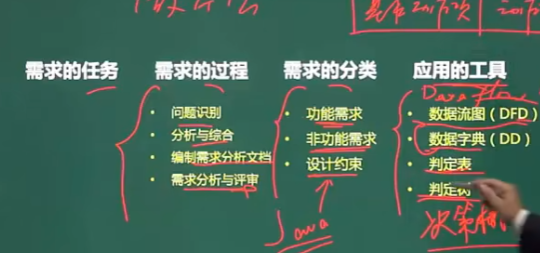 需求的任务
需求的过程
需求的分类
应用的工具
Data flow
• 问题识别
• 分析与综合
• 编制需求分析文档
• 需求分析与评审
• 功能需求
• 非功能需求
• 设计约束
• 数据流图（DFD）
• 数据字典（DD）
• 判定表
• 判定树
Java
决策树